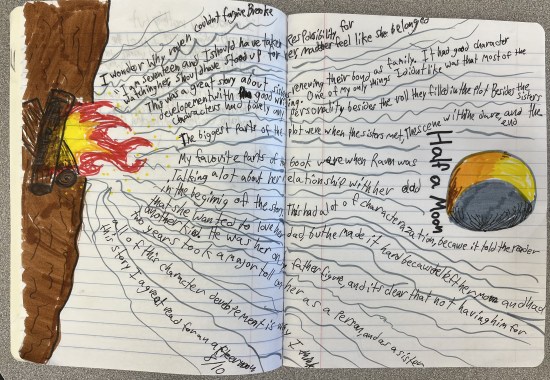 I wonder Why raven couldnt forgive Brooke
I am seventeen and I should have taken Responsibility for
watching her, should have stood up for her, made her feel like she belonged
This was a great story about sisters renewing their bond as family. It had good character
development with good writing. One of my only things I didnt like was that most of the
characters had barely any personality besides the roll they filled in the Plot Besides the sisters
The biggest parts of the plot were when the sisters met, The scene with the dare, and the end
My favourite parts of the book were when Raven was
Talking alot about her relationship with her dad
in the begining of the story. This had alot of characterazation, because it told the reader
that she wanted to love her dad, but he made it hard because he left her mom and had
another kid. He was her only father figure, and its clear that not having him for
two years took a major toll on her as a person, and as a sister
all of this character development is why I think
this story is a great read for an afternoon
8/10
Half a Moon